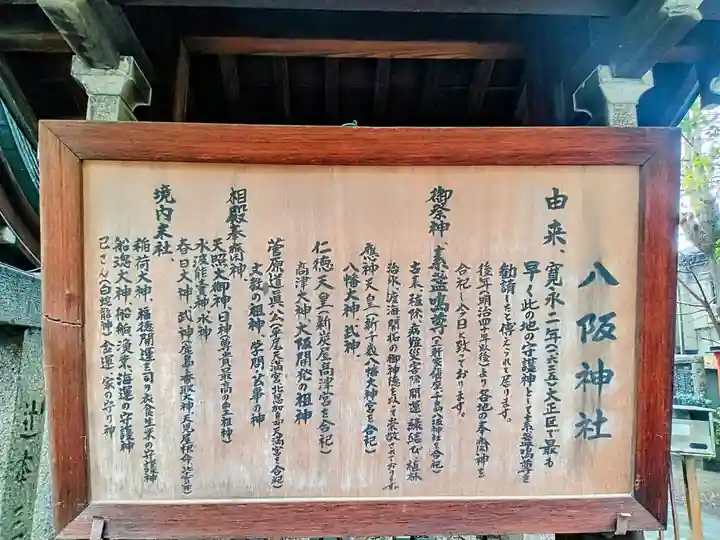 八阪神社
由来、寛永二年(一六二五)大正区で最も
早く此の地の守護神として素盞鳴尊を
勧請したと傳えられて居ります。
後年、明治四十年以後により各地の奉斎神を
合祀し今日に致っております。
御祭神、素盞鳴尊(三軒家・八阪神社を合祀)
古来、疫除、病難災害除、開運、縁結び、植林
治水、渡海開拓の御神徳を以て崇敬されております。
應神天皇(新千歳八幡大神宮を合祀)
八幡大神、武神、
仁徳天皇(新炭屋高津宮を合祀)
高津大神、大阪開発の祖神
菅原道眞公(天満宮、北恩加島天満宮を合祀)
文教の祖神、学問、芸事の神
相殿奉斎神、
天照大御神、日神(萬香具最高の皇祖神)
水波能賣神、水神
春日大神、武神(鹿島、香取大神天児屋根命、比賣神)
境内末社、
稲荷大神、福徳開運を司り衣食生業の守護神
船魂大神、船舶漁業、海運の守護神
巳さん(白蛇龍神)金運、家の守り神